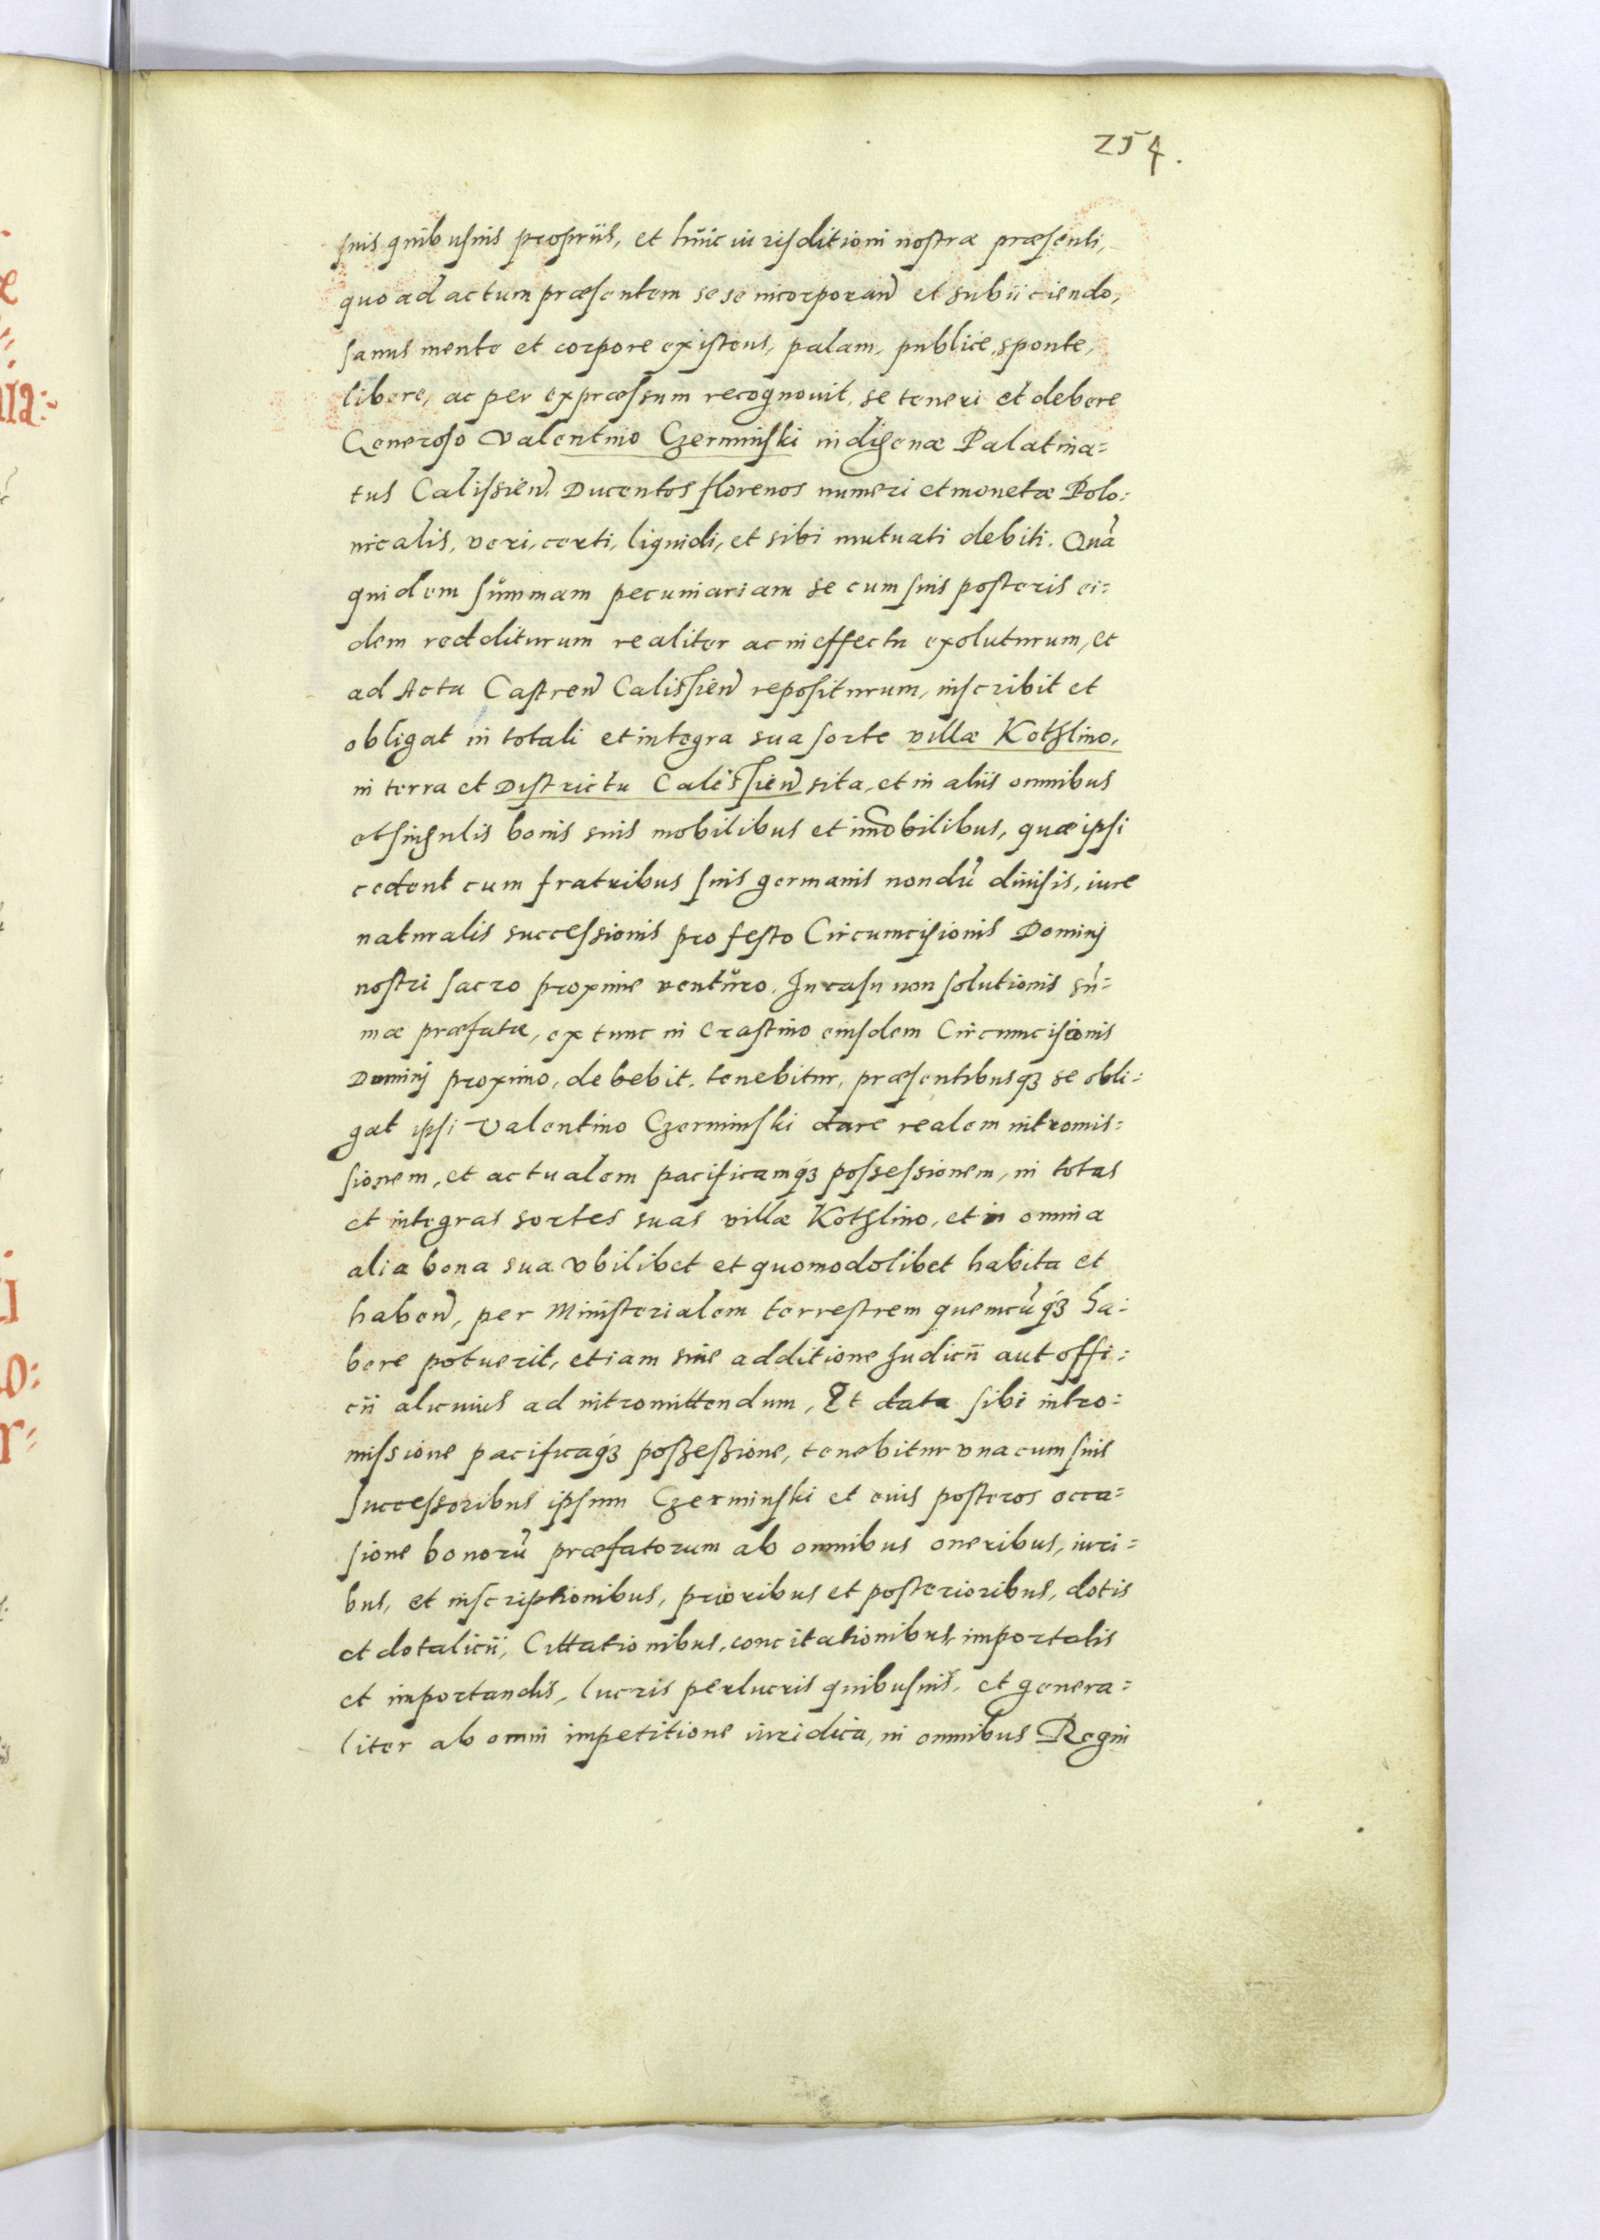 254.
suis quibusuis proprijs, et huic iurisditioni nostræ præsenti,
quo ad actum præsentem sese incorporañ et subijciendo,
sanus mente et corpore existens, palam, publice, sponte,
libere, ac per expræssum recognouit, se teneri et debere
Generoso Valentino Czerminski indigenæ Palatina=
tus Calissieñ. Ducentos florenos numeri et monetæ Polo:
nicalis, veri, certi, liquidi, et sibi mutuati debiti. Quã
quidem summam pecuniariam se cum suis posteris ei:
dem redditurum realiter ac in effectu exoluturum, et
ad Acta Castreñ Calissieñ repositurum, inscribit et
obligat in totali et integra sua sorte villæ Kothlino,
in terra et Districtu Calissieñ sita, et in alijs omnibus
et singulis bonis suis mobilibus et imobilibus, quæ ipsi
cedent cum fratribus suis germanis nondũ diuisis, iure
naturalis successionis pro festo Circumcisionis Dominj
nostri sacro proxime venturo. In casu non solutionis sũ=
mæ præfatæ, ex tunc in crastino eiusdem Circumcisionis
Dominj proximo, debebit, tenebitur, præsentibusq́ʒ se obli:
gat ipsi Valentino Czerminski dare realem intromis:
sionem, et actualem pacificamq́ʒ possessionem, in totas
et integras sortes suas villæ Kothlino, et in omnia
alia bona sua vbilibet et quomodolibet habita et
habeñ, per Ministerialem terrestrem quemcũq́ʒ ha:
bere potuerit, etiam sine additione Judicij aut offi:
cij alicuius ad intromittendum, Et data sibi intro:
missione pacificaq́ʒ poßeßione, tenebitur vna cum suis
successoribus ipsum Czerminski et eius posteros occa=
sione bonorũ præfatorum ab omnibus oneribus, iuri=
bus, et inscriptionibus, prioribus et posterioribus, dotis
et dotalicij, Cittationibus, concitationibus importatis
et importandis, lucris perlucris quibusuis, et genera=
liter ab omni impetitione iuridica, in omnibus Regni